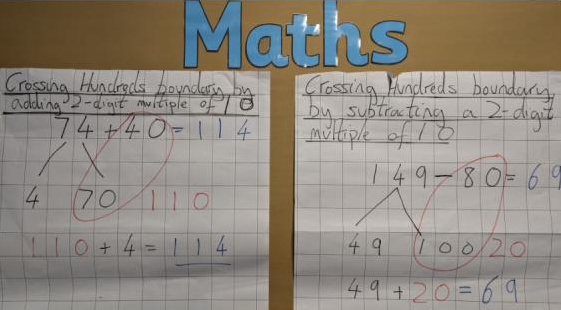 Maths
Crossing Hundreds boundary by
adding 2-digit multiple of 10
74+40=114
4 70 110
110+4=114
Crossing Hundreds boundary,
by subtracting a 2-digit
multiple of 10
149-80=69
49 100 20
49+20=69